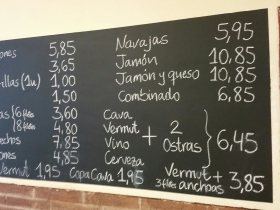 ones 5,85
3,65
illas (1u) 1,00
1,50
as 16 files 3,60
18 files 4,80
echos 7,85
ones 4,85
Vermut 1,95 Copa Cava 1,95
Navajas 5,95
Jamón 10,85
Jamón y queso 10,85
Combinado 6,85
Cava
Vermut + 2
Vino Ostras } 6,45
Cerveza
Vermut +
3 files anchoas 3,85